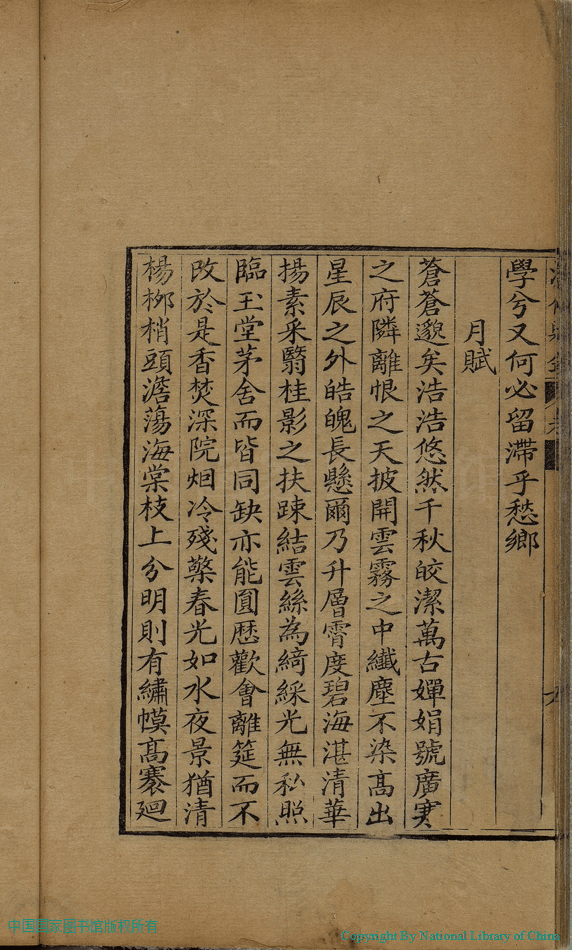 學兮又何必留滯乎愁鄉
月賦
蒼蒼邈矣浩浩悠然千秋皎潔萬古嬋娟號廣寒
之府隣離恨之天披開雲霧之中纖塵不染髙出
星辰之外皓魄長懸爾乃升層霄度碧海湛清華
揚素采翳桂影之扶踈結雲絲為綺綵光無私照
臨玉堂茅舍而皆同缺亦能圓歴歡會離筵而不
攺於是香焚深院烟冷殘檠春光如水夜景猶清
楊桞梢頭澹蕩海棠枝上分明則有繡幙髙褰廻
中国国家图书馆版权所有
Copyright By National Library of China